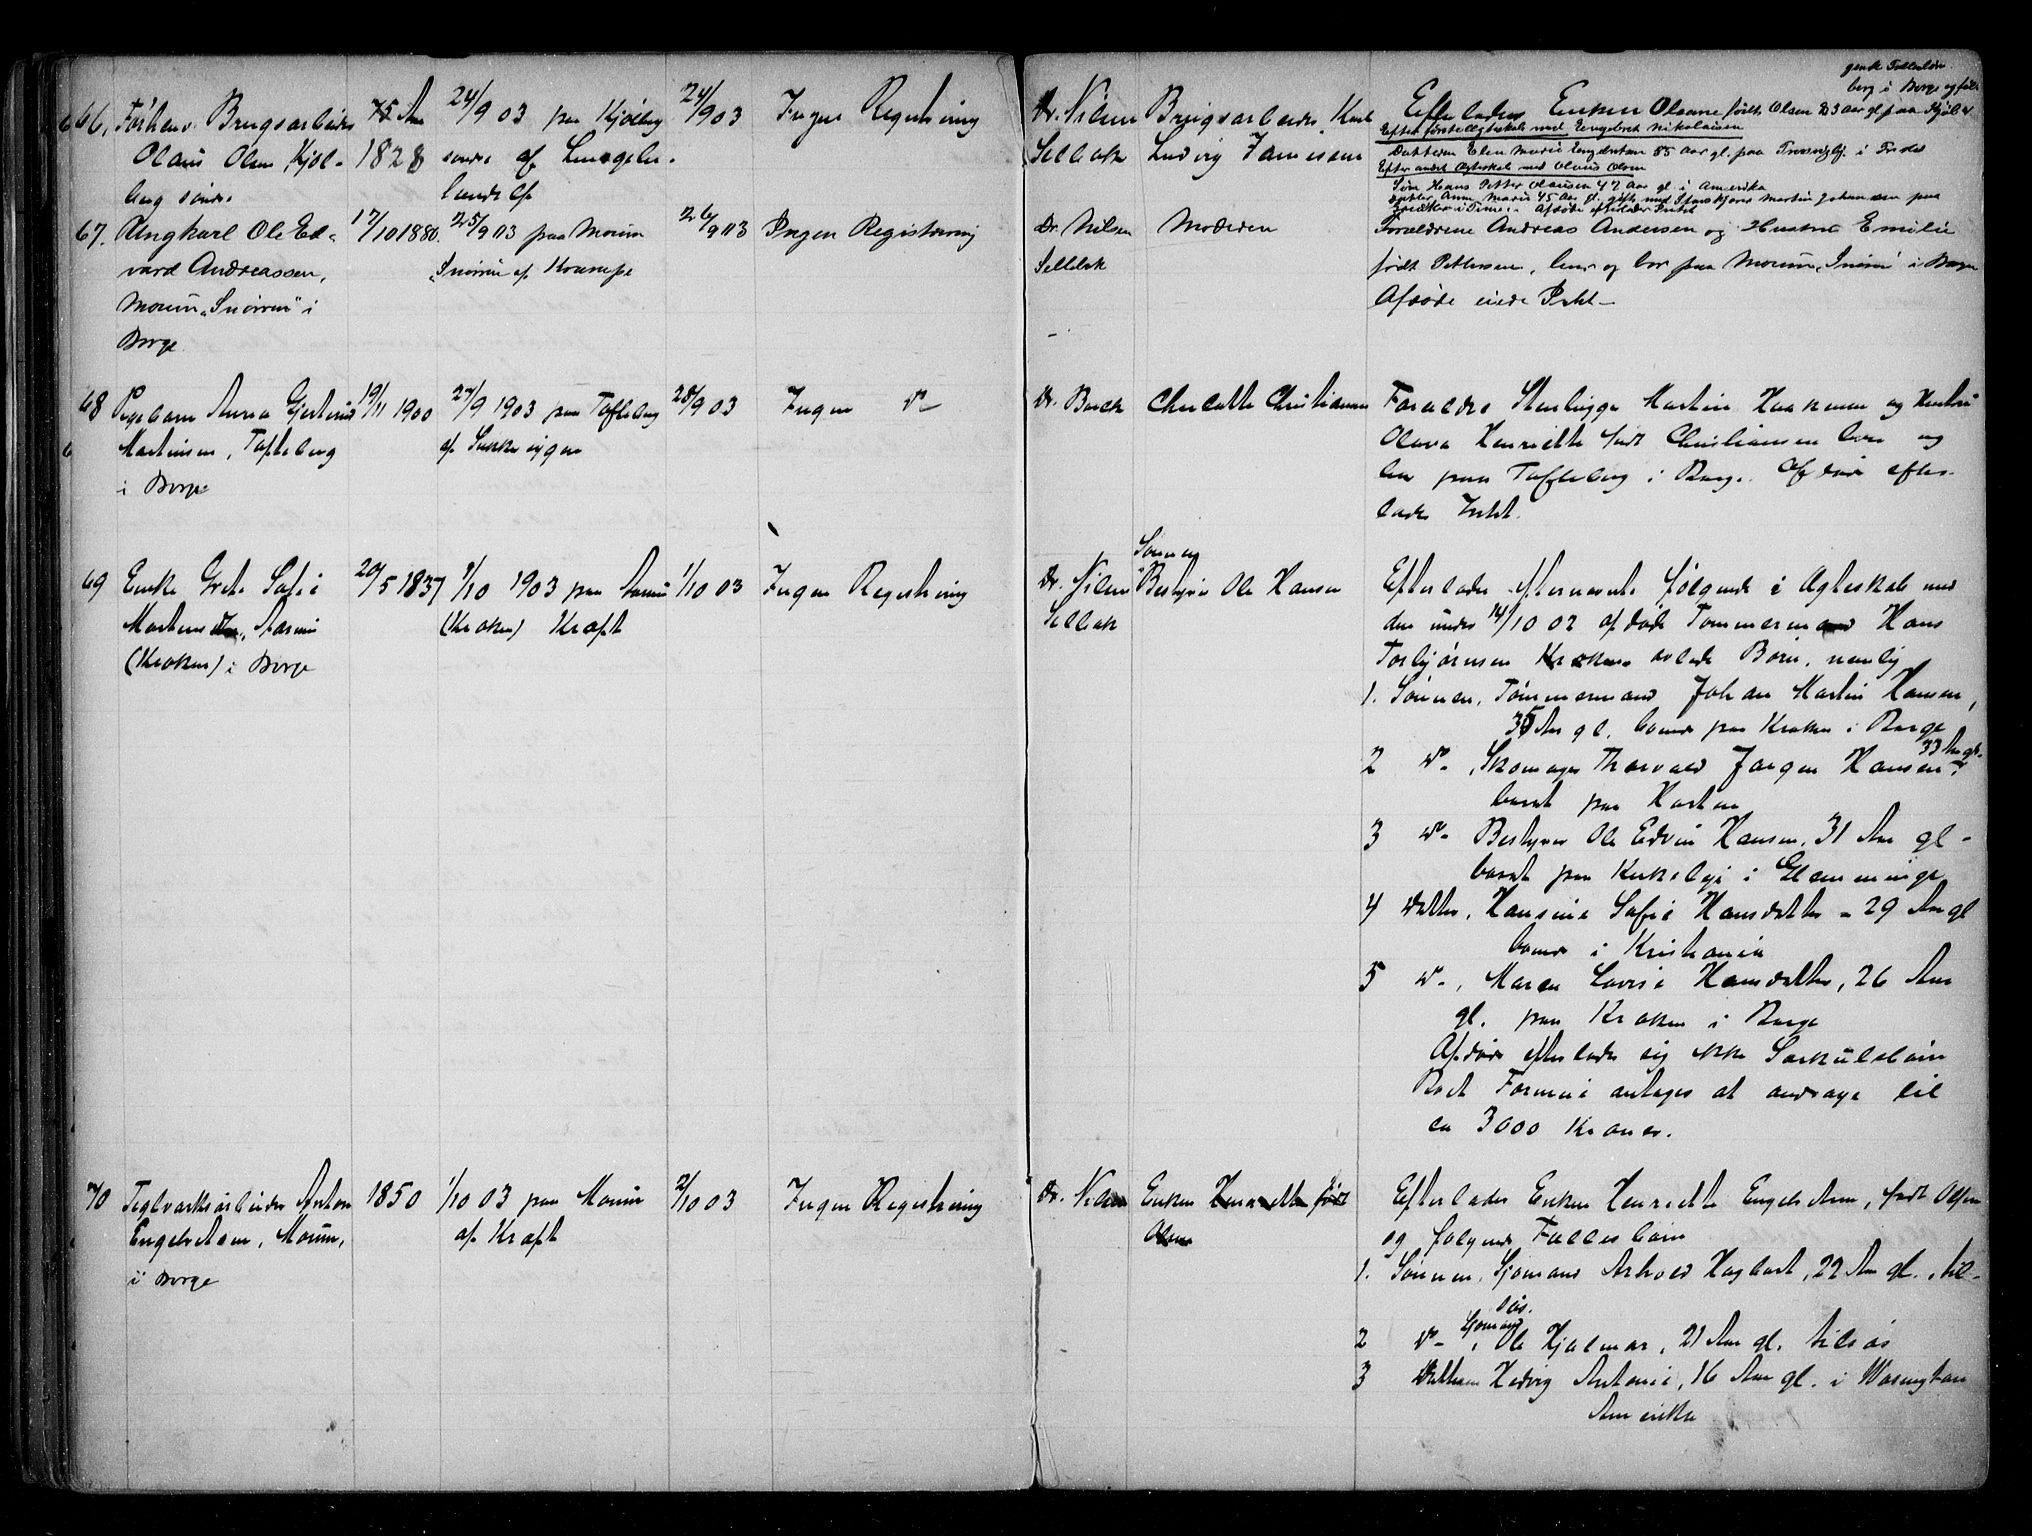 66, Forhenv. Brugsarbeider 75 Aar 24/9 03 paa Kjölberg 24/9 03 Ingen Registrering Dr. Nilsen Brugsarbeider Karl Efterlader Enken Oleane født Olsen 83 aar gl. paa Kjöl-
Olaus Olsen Kjöl- 1828 søndre af Lungebe- Sellebak Ludvig Jamissen
berg søndre tændelse
Efter første Ægteskab med Engebret Nikolaisen
Datteren Elen Marie Engebretsen 55 aar gl. paa i Fredr.
Efter andet Ægteskab med Olaus Olsen
Søn Hans Petter Olausen 47 aar gl. i Amerika
Datter Anne Marie 45 aar gl. gift med Martin Johansen paa
Afdøde efterlader Intet
67. Ungkarl Ole Ed- 17/10 1880. 25/9 03 paa Moum 26/9 03 Ingen Registrering Dr. Nilsen Moderen Forældrene Andreas Andersen og Hustru Emilie
vard Andreassen, Snörrin af Krampe Sellebak født Pettersen, lever og bor paa Moum "Snörrin" i Borge
Moum "Snörrin" i Afdøde eiede Intet
Borge
68 Pigebarn Anna Gjertine 19/11 1900 27/9 1903 paa Tofteberg 28/9 03 Ingen Do Dr. Borch Christian Forældre Stenhugger Martin Haakensen og Hustru
Martinsen, Tofteberg af Sukkersyge Olava Henriette født Christiansen lever og
i Borge bor paa Tofteberg i Borge. Afdøde efter-
lader Intet.
69 Enke Grete Sofie 20/5 1837 1/10 1903 paa 1/10 03 Ingen Registrering Dr. Nilsen Sønnen Bestyrer Ole Hansen Efterlader efternævnte følgende i Ægteskab med
Martens (Kroken) Kræft Sellebak den under 14/10 02 afdøde Tømmermand Hans
(Kroken) i Borge Torbjørnsen Kroken avlede Børn, nemlig
1. Sønnen, Tömmermand Johan Martin Hansen,
35 Aar gl. boende paa Kroken i Borge
2 Do , Skomager Thorvald Jørgen Hansen, 33 Aar gl.
bosat paa Horten
3 Do Bestyrer Ole Edvin Hansen, 31 Aar gl -
bosat paa Kirkeby i Glemminge
4 Datter, Hansine Sofie Hansdatter - 29 Aar gl
boende i Kristiania
5 Do , Maren Lovise Hansdatter, 26 Aar
gl. paa Kroken i Borge
Afdøde efterlader sig ikke Særkulsbørn
Boets Formue antages at andrage til
ca 3000 Kroner.
70 Teglværksarbeider Anton 1850 1/10 03 paa Moum 2/10 03 Ingen Registrering Dr. Nilsen Enken Henriette født Efterlader Enken Henriette Engebretsen, født Olsen
Engebretsen, Moum, af Kræft Olsen og følgende Fællesbørn
i Borge 1. Sönnen, Sjømand Arhold Hagbart, 22 Aar gl., til-
søs.
2 Do , Sjømand Ole Hjalmar, 21 Aar gl. tilsøs
3 Datteren Hedvig Antonie, 16 Aar gl. i Wasington
Amerika